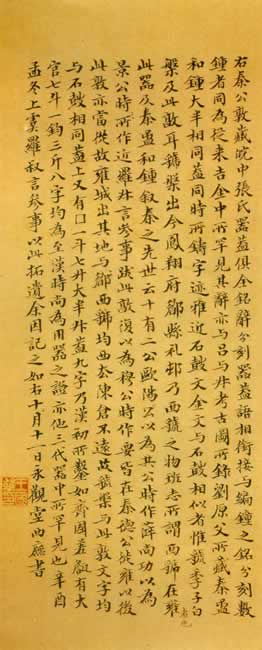 右秦公敦藏沇中張氏器蓋俱全銘辭分刻器蓋語相銜接与編鐘之銘分刻數
鍾者同為從來古金中所罕見其辭亦与呂与叔考古圖所錄劉原父所藏秦盄
和鍾大半相同蓋同時所鑄字迹雅近石鼓文金文与石鼓相似者惟虢季子白
槃及此敦耳虢槃出今鳳翔府郿縣礼邨乃西虢之物班志所謂西虢在雍者也
此器及秦盄和鍾敘秦之先世云十有二公歐陽公以為共公時作薛尚功以為
景公時所作近羅叔言參事跋此敦復以為穆公時作要皆在秦德公徙雍以後
此敦亦當從故雍城出其地与郿西虢均西去陳倉不遠故虢槃与此敦文字均
与石鼓相同蓋上又有囗一斗七升大半升蓋九字乃漢初所鑿如齊國差有大
官七斗一鈞三斤八字均為至漢時尚為用器之證亦他三代器中所罕見也辛酉
孟冬上虞羅叔言參事以此拓遺余因記之如右十月十一日永觀堂西廡書